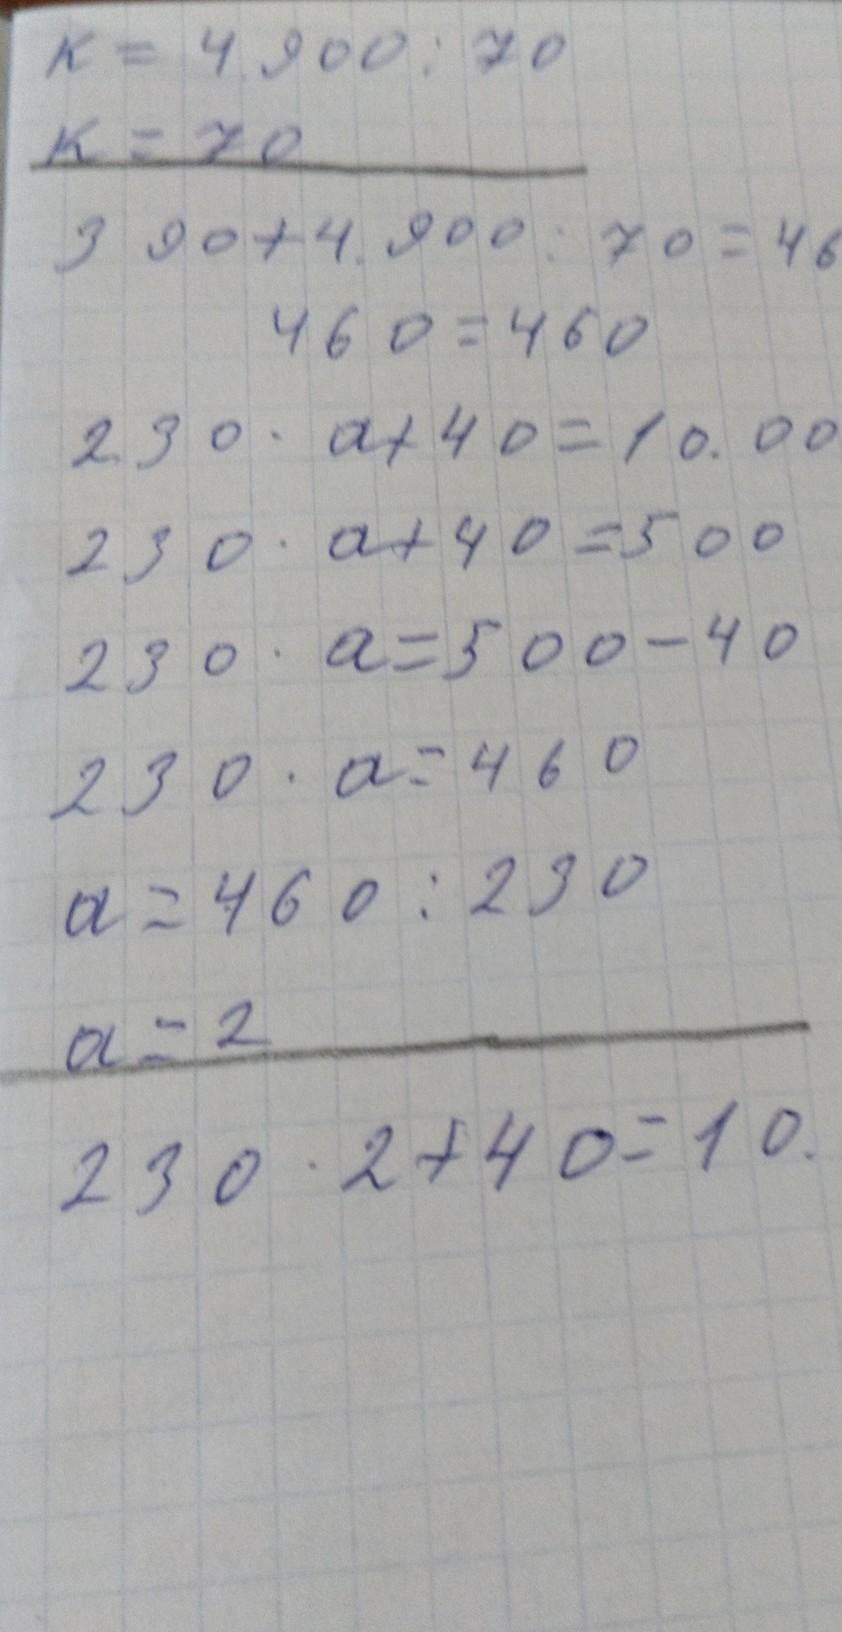 к = 4.900 : 70
к = 70
390 + 4.900 : 70 = 46
460 = 460
230 · а + 40 = 10.00
230 · а + 40 = 500
230 · а = 500 - 40
230 · а = 460
а = 460 : 230
а = 2
230 · 2 + 40 = 10.